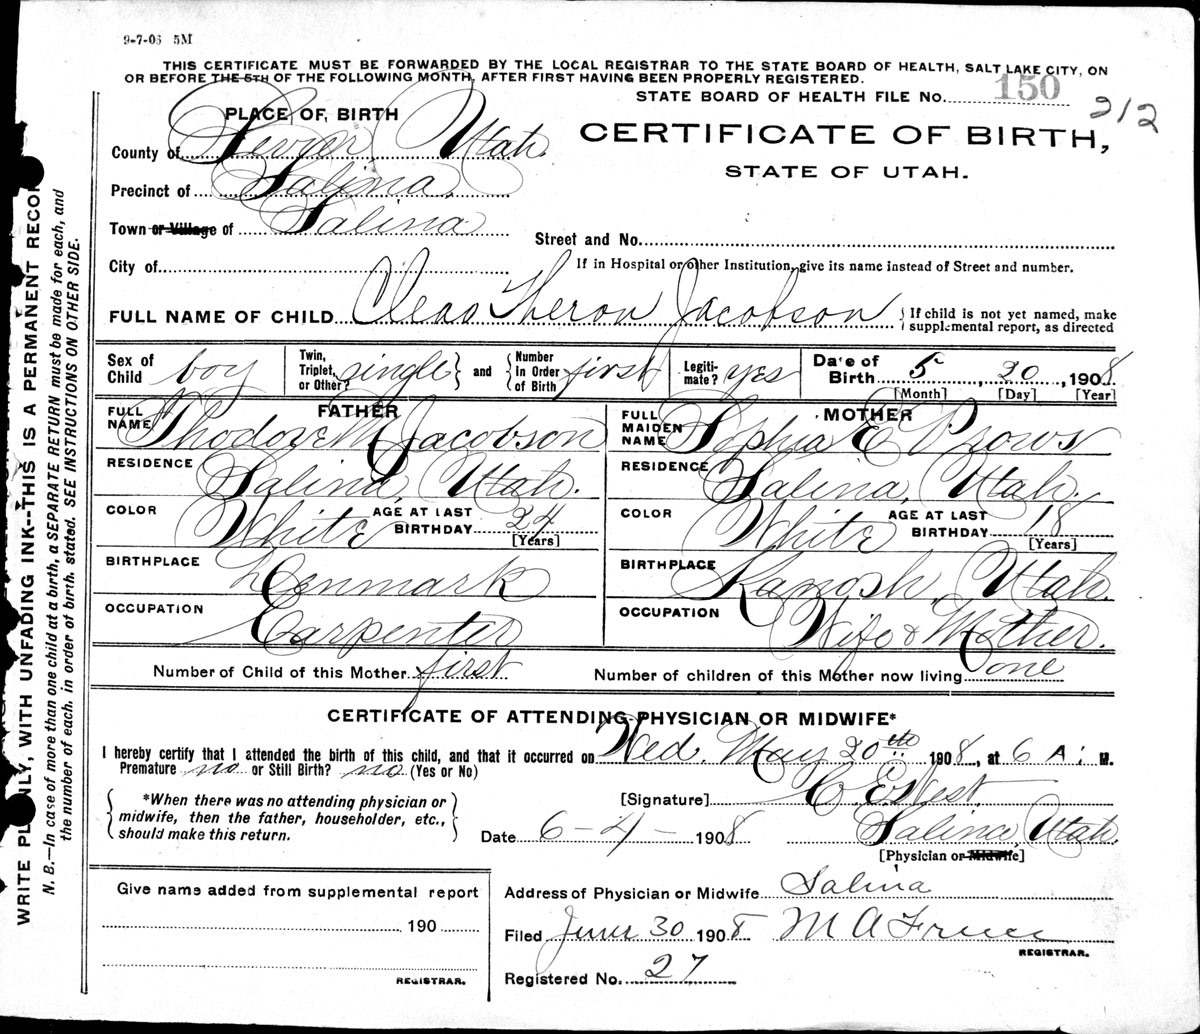 9-7-06 5M
THIS CERTIFICATE MUST BE FORWARDED BY THE LOCAL REGISTRAR TO THE STATE BOARD OF HEALTH, SALT LAKE CITY, ON
OR BEFORE THE 5TH OF THE FOLLOWING MONTH, AFTER FIRST HAVING BEEN PROPERLY REGISTERED.
STATE BOARD OF HEALTH FILE No. 150
212
PLACE OF BIRTH
CERTIFICATE OF BIRTH,
STATE OF UTAH.
County of Sevier Utah.
Precinct of Salina,
Town or Village of Salina
Street and No.
City of
If in Hospital or other Institution, give its name instead of Street and number.
FULL NAME OF CHILD Cleao Theron Jacobson
If child is not yet named, make
supplemental report, as directed
Sex of Child boy
Twin, Triplet, or Other? single and Number In Order of Birth first
Legiti-mate? yes
Date of Birth 5, 20, 1908
[Month] [Day] [Year]
FATHER
FULL NAME Thodore M Jacobson
RESIDENCE Salina, Utah.
COLOR White AGE AT LAST BIRTHDAY 24
[Years]
BIRTHPLACE Denmark
OCCUPATION Carpenter
MOTHER
FULL MAIDEN NAME Sophia E Prows
RESIDENCE Salina, Utah.
COLOR White AGE AT LAST BIRTHDAY 18
[Years]
BIRTHPLACE Kanosh, Utah.
OCCUPATION Wife & Mother.
Number of Child of this Mother first
Number of children of this Mother now living one
CERTIFICATE OF ATTENDING PHYSICIAN OR MIDWIFE*
I hereby certify that I attended the birth of this child, and that it occurred on Wed. May 20th 1908, at 6 A. M.
Premature no or Still Birth? no (Yes or No)
*When there was no attending physician or
midwife, then the father, householder, etc.,
should make this return.
[Signature] C. E. West.
Date 6-4-1908
Salina, Utah.
[Physician or Midwife]
Give name added from supplemental report
190
REGISTRAR.
Address of Physician or Midwife Salina
Filed June 30 1908 M A
REGISTRAR.
Registered No. 27
WRITE PLAINLY, WITH UNFADING INK--THIS IS A PERMANENT RECOR
N. B.—In case of more than one child at a birth, a SEPARATE RETURN must be made for each, and
the number of each, in order of birth, stated. SEE INSTRUCTIONS ON OTHER SIDE.